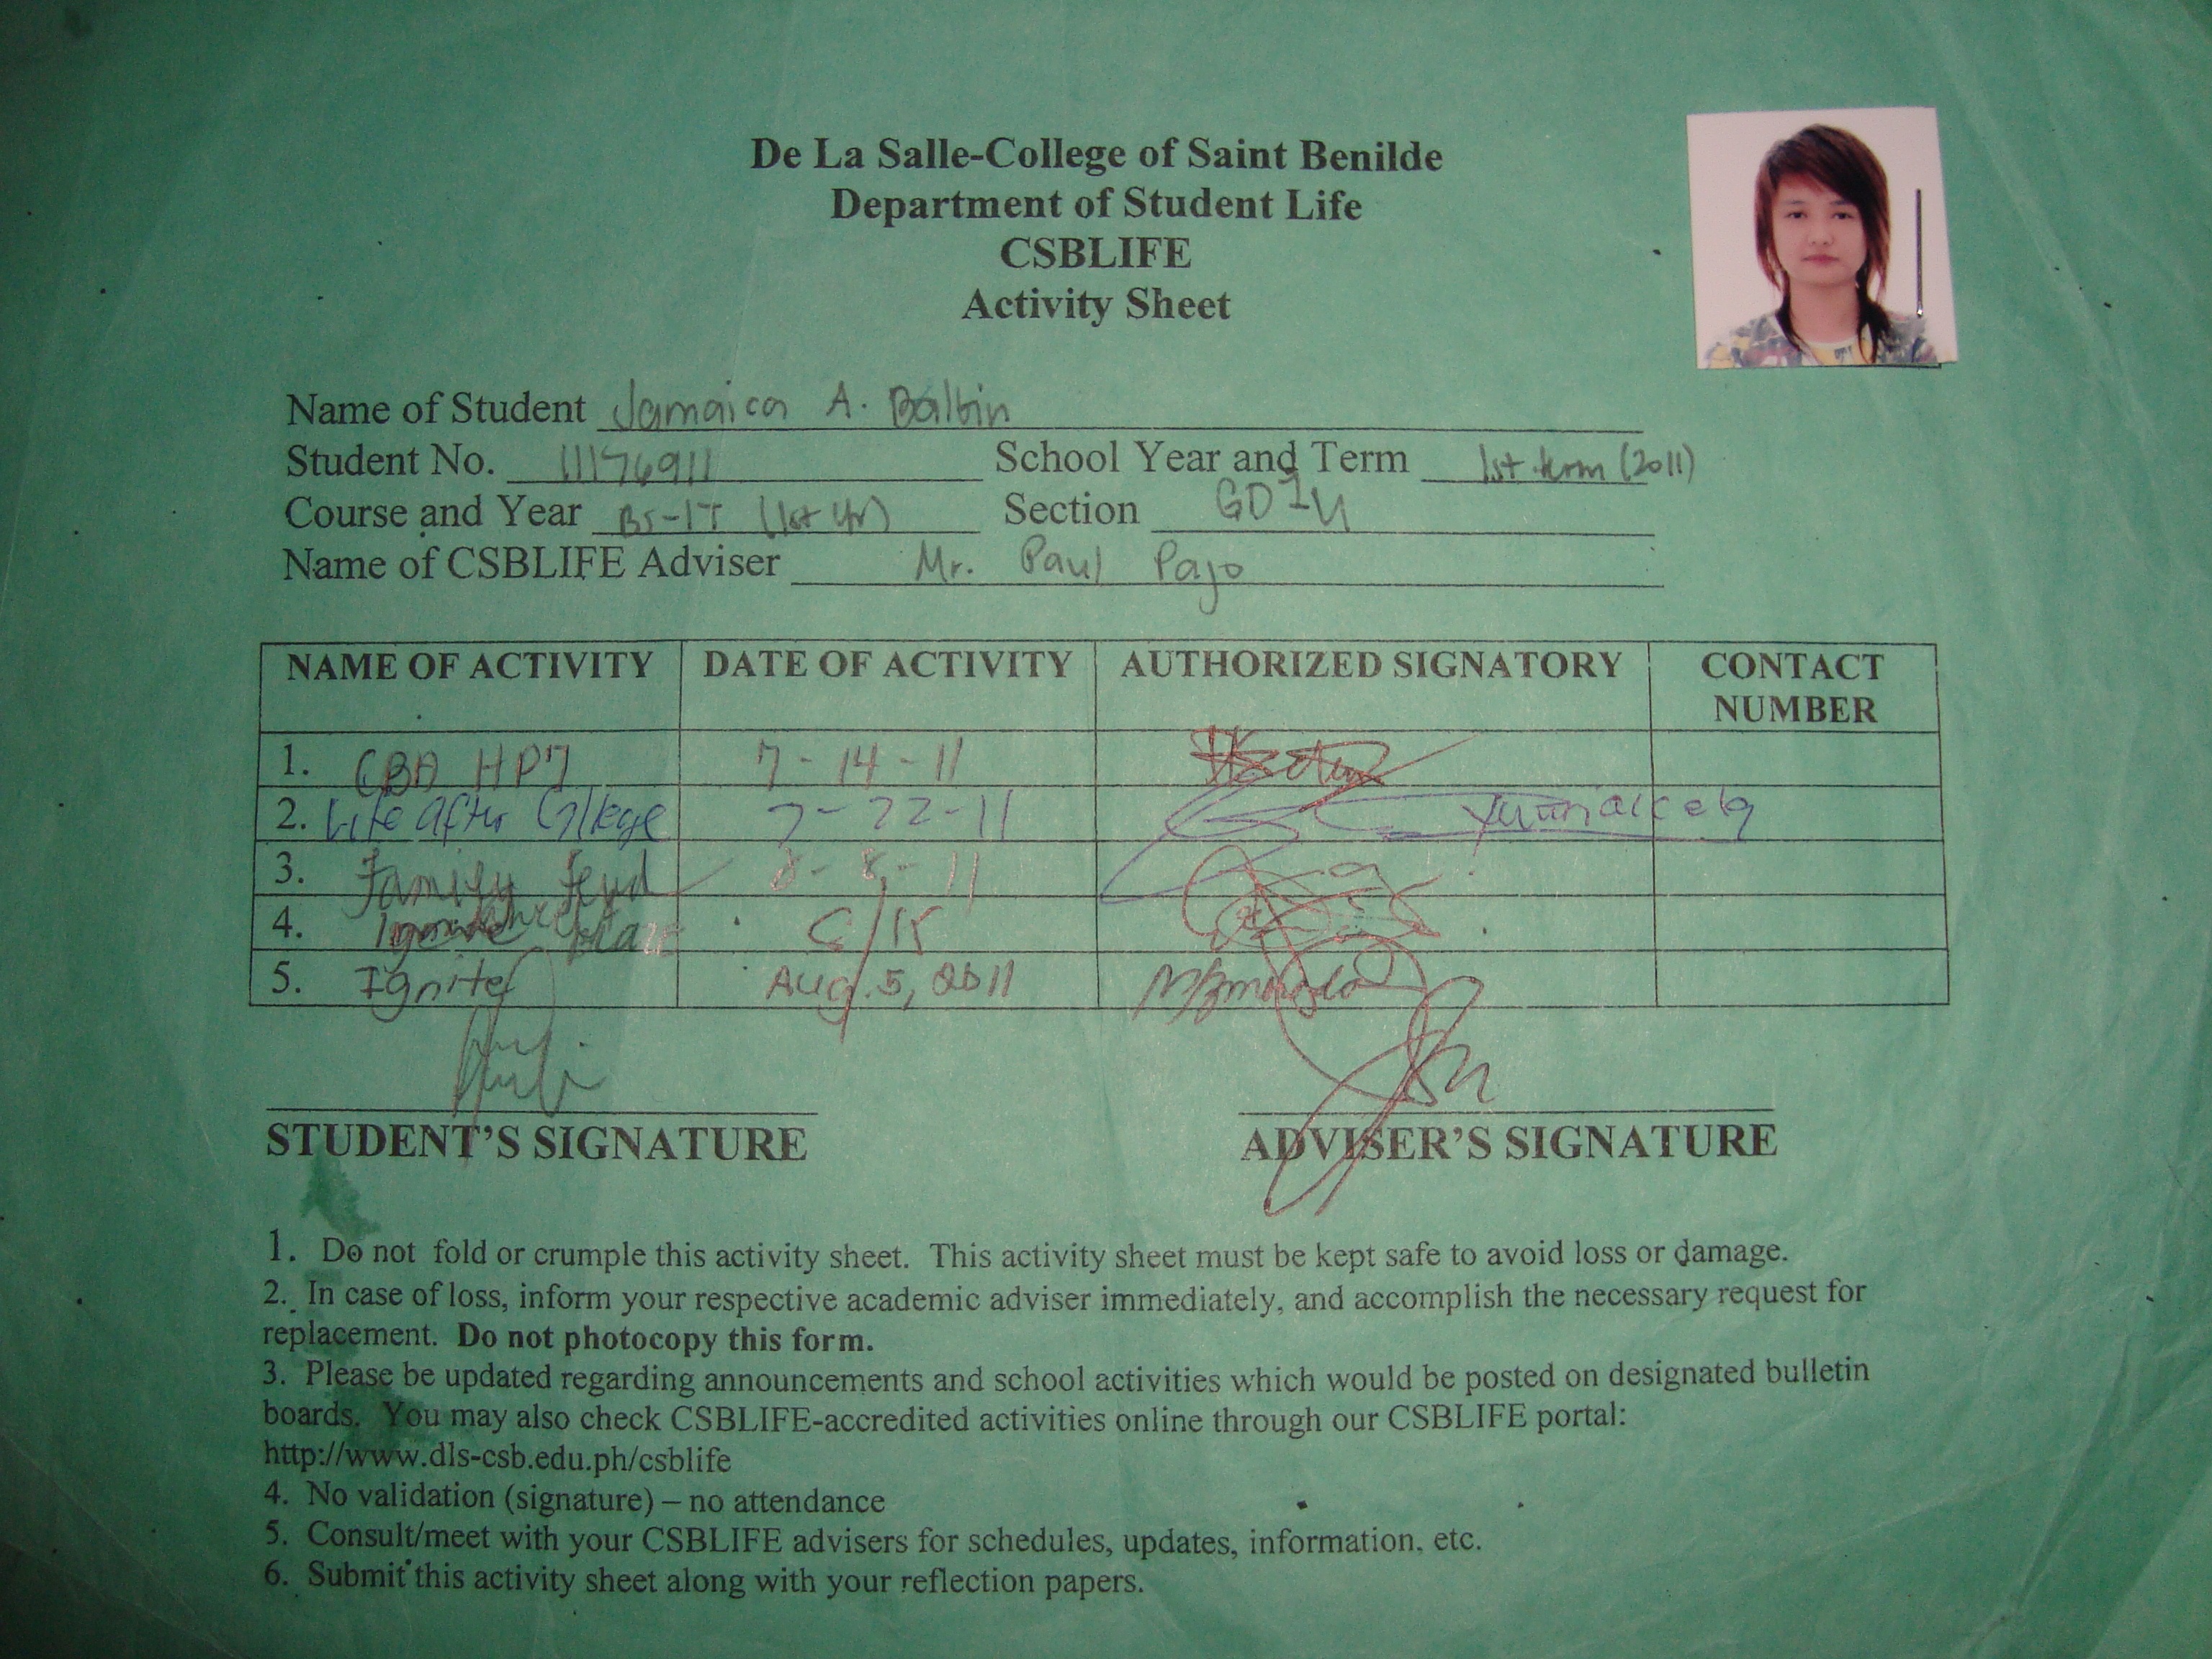 De La Salle-College of Saint Benilde
Department of Student Life
CSBLIFE
Activity Sheet
Name of Student Jamaica A. Balbin
Student No. 11176911 School Year and Term 1st term (2011)
Course and Year BS-IT (1st yr) Section
Name of CSBLIFE Adviser Mr. Paul Pajo
NAME OF ACTIVITY DATE OF ACTIVITY AUTHORIZED SIGNATORY CONTACT NUMBER
1. CBA HP7 7-14-11
2. Life After College 7-22-11
3. Family Feud 8-8-11
4.
5. Ignite Aug. 5, 2011
STUDENT'S SIGNATURE ADVISER'S SIGNATURE
1. Do not fold or crumple this activity sheet. This activity sheet must be kept safe to avoid loss or damage.
2. In case of loss, inform your respective academic adviser immediately, and accomplish the necessary request for
replacement. Do not photocopy this form.
3. Please be updated regarding announcements and school activities which would be posted on designated bulletin
boards. You may also check CSBLIFE-accredited activities online through our CSBLIFE portal:
http://www.dls-csb.edu.ph/csblife
4. No validation (signature) – no attendance
5. Consult/meet with your CSBLIFE advisers for schedules, updates, information, etc.
6. Submit this activity sheet along with your reflection papers.